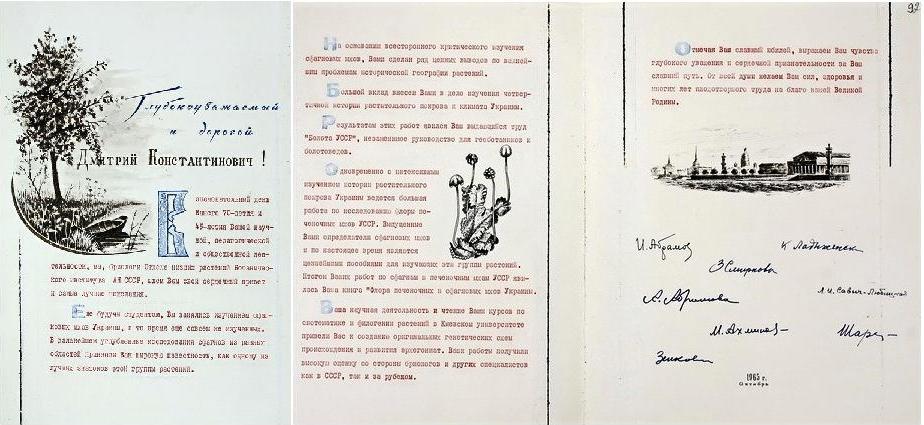 Глубокоуважаемый
и дорогой
Дмитрий Константинович !
В знаменательный день
Вашего 70-летия и
45-летия Вашей науч-
ной, педагогической
и общественной дея-
тельности, мы, бриологи Отдела низших растений Ботаничес-
кого института АН СССР, шлем Вам свой сердечный привет
и самые лучшие пожелания.
Еще будучи студентом, Вы занялись изучением сфаг-
новых мхов Украины, в то время еще совсем не изученных.
В дальнейшем углубленные исследования сфагнов из разных
областей принесли Вам широкую известность, как одному из
лучших знатоков этой группы растений.
На основании всестороннего критического изучения
сфагновых мхов, Вами сделан ряд ценных выводов по важней-
шим проблемам исторической географии растений.
Большой вклад внесен Вами в дело изучения четвер-
тичной истории растительного покрова и климата Украины.
Результатом этих работ явился Ваш выдающийся труд
"Болота УССР", незаменимое руководство для геоботаников и
болотоведов.
Одновременно с интенсивным
изучением истории растительного
покрова Украины ведется большая
работа по исследованию флоры пе-
ченочных мхов УССР. Выпущенные
Вами определители сфагновых мхов
и по настоящее время являются
ценнейшими пособиями для изучающих эти группы растений.
Итогом Ваших работ по сфагновым и печеночным мхам УССР яви-
лась Ваша книга "Флора печеночных и сфагновых мхов Украины.
Ваша научная деятельность и чтение Вами курсов по
систематике и филогении растений в Киевском университете
привели Вас к созданию оригинальных генетических схем
происхождения и развития архегониат. Ваши работы получили
высокую оценку со стороны бриологов и других специалистов
как в СССР, так и за рубежом.
92
Отмечая Ваш славный юбилей, выражаем Вам чувство
глубокого уважения и сердечной признательности за Ваш
славный путь. От всей души желаем Вам сил, здоровья и
многих лет плодотворного труда на благо нашей Великой
Родины.
И. Абрамов
К Ладыженская
З Смирнова
Л.И. Савич-Любицкая
А. Абрамова
М. Ахминова
1965 г.
Октябрь